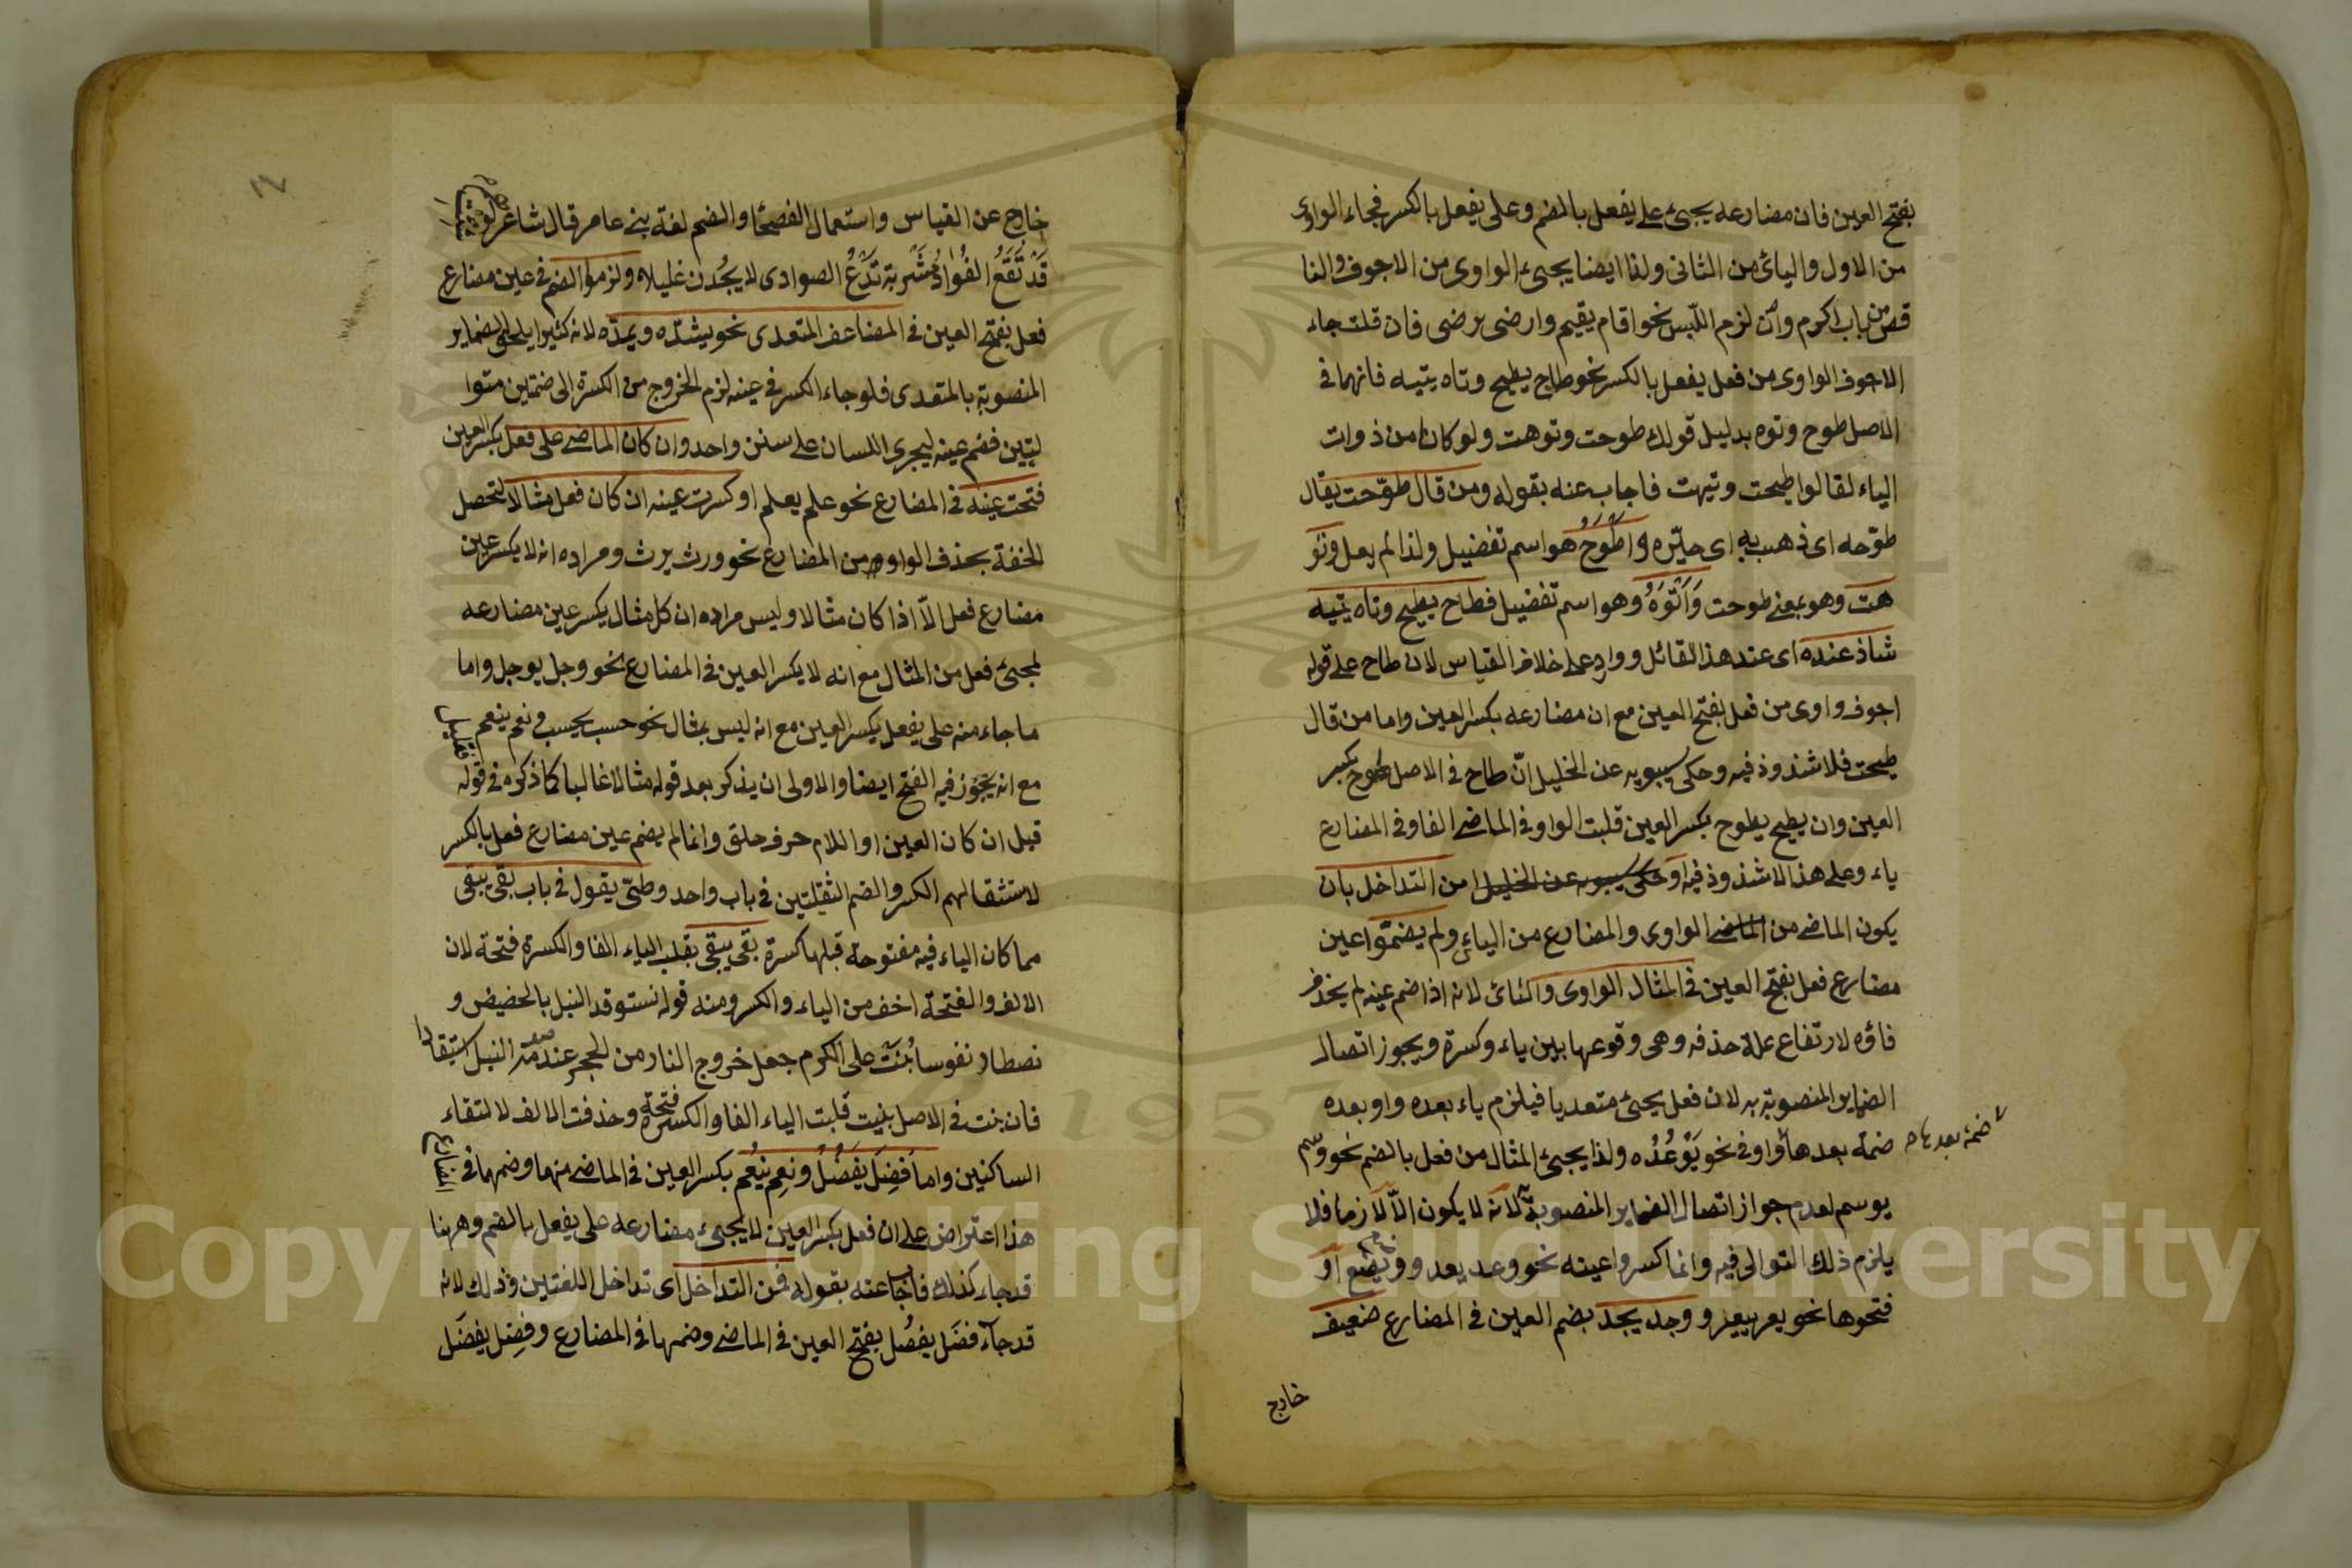 بفتح العين فان مضارعه يجيئ على يفعل بالضم وعلى يفعل بالكسر فجاء الواوى
من الاول واليائ من الثانى ولذا ايضا يجيئ الواوى من الاجوف والنا
قص من باب اكرم وان لزم اللبس نحو اقام يقيم وارضى يرضى فان قلت جاء
الاجوف الواوى من فعل يفعل بالكسر نحو طاح يطيح وتاه يتيه فانهما فى
الاصل طوح وتوه بدليل قولك طوحت وتوهت ولو كانا من ذوات
الياء لقالوا طيحت وتيهت فاجاب عنه بقوله ومن قال طوّحت يقال
طوّحه اى ذهب به اى حيّره واَطْوَحُ هو اسم تفضيل ولذا لم يعل وتَو
هت وهو بمعنى طوحت وَاَتْوَهُ وهو اسم تفضيل فطاح يطيح وتاه يتيه
شاذ عنده اى عند هذا القائل ووارد على خلاف القياس لان طاح على قوله
اجوف واوى من فعل بفتح العين مع ان مضارعه بكسر العين واما من قال
طيحت فلا شذوذ فيه وحكى سيبويه عن الخليل انّ طاح فى الاصل طوح بكسر
العين وان يطيح يطوح بكسر العين قلبت الواو فى الماضى الفا وفى المضارع
ياء وعلى هذا لا شذوذ فيه او حكى سيبويه عن الخليل من التداخل بان
يكون الماضى من الماضى الواوى والمضارع من اليائ ولم يضمّوا عين
مضارع فعل بفتح العين فى المثال الواوى واليائ لانه اذا ضم عينه لم يحذف
فاؤه لارتفاع علة حذفه وهى وقوعها بين ياء وكسرة ويجوز اتصال
الضماير المنصوبة به لان فعل يجيئ متعديا فيلزم ياء بعده واو بعده
ضمة بعدها
ضمة بعدها واو فى نحو يَوْعُدُه ولذا يجيئ المثال من فعل بالضم نحو وسم
يوسم لعدم جواز اتصال الضماير المنصوبة لانه لا يكون الاّ لازما فلا
يلزم ذلك التوالى فيه وانما كسروا عينه نحو وعد يعد او
فتحوها نحو يعر ييعر ووجد يجد بضم العين فى المضارع ضعيف
خارج
خارج عن القياس واستعمال الفصحا والضم لغة بنى عامر قال شاعر لو شئت
قَدْ نَقَعَ الفُوادُ بشَرْبة تَدَعُ الصوادى لا يجُدن غليلا ولزموا الضم فى عين مضارع
فعل بفتح العين فى المضاعف المتعدى نحو يشدّه ويمدّه لانه كثيرا يلحق الضماير
المنصوبة بالمتعدى فلو جاء الكسر فى عينه لزم الخروج من الكسرة الى ضمتين متوا
ليتين فضم عينه ليجرى اللسان على سنن واحد وان كان الماضى على فعل بكسر العين
فتحت عينه فى المضارع نحو علم يعلم او كسرت عينه ان كان فعل مثالا لتحصل
الخفة بحذف الواو من المضارع نحو ورث يرث ومراده انه لا يكسر عين
مضارع فعل الاّ اذا كان مثالا وليس مراده ان كل مثال يكسر عين مضارعه
لمجيئ فعل من المثال مع انه لا يكسر العين فى المضارع نحو وجل يوجل واما
ما جاء منه على يفعل بكسر العين مع انه ليس بمثال نحو حسب يحسب ونعم ينعم فقليل
مع انه يجوز فيه الفتح ايضا والاولى ان يذكر بعد قوله مثالا غالبا كما ذكره فى قوله
قبل ان كان العين او اللام حرف حلق وانما لم يضم عين مضارع فعل بالكسر
لاستثقالهم الكسر والضم الثقيلتين فى باب واحد وطيّئ يقول فى باب بقى يبقى
مما كان الياء فيه مفتوحة قبلها كسرة بقى يبقى بقلب الياء الفا والكسرة فتحة لان
الالف والفتحة اخف من الياء والكسر ومنه قوله نستوقد النبل بالحضيض و
نصطاد نفوسا بُنَتْ على الكرم جعل خروج النار من الحجر عند صدمة النبل استيقادا
فان بنت فى الاصل بنيت قلبت الياء الفا والكسرة فتحة وحذفت الالف لالتقاء
الساكنين واما فَضِلَ يفضُلُ ونعِم ينعُم بكسر العين فى الماضى منهما وضمهما فى المضارع
هذا اعتراض على ان فعل بكسر العين لا يجيئ مضارعه على يفعل بالضم وههنا
قد جاء كذلك فاجاب عنه بقوله فمن التداخل اى تداخل اللغتين وذلك لانه
قد جاء فضَل يفضُل بفتح العين فى الماضى وضمها فى المضارع وفضِل يفضَل
Copyright © King Saud University
1957